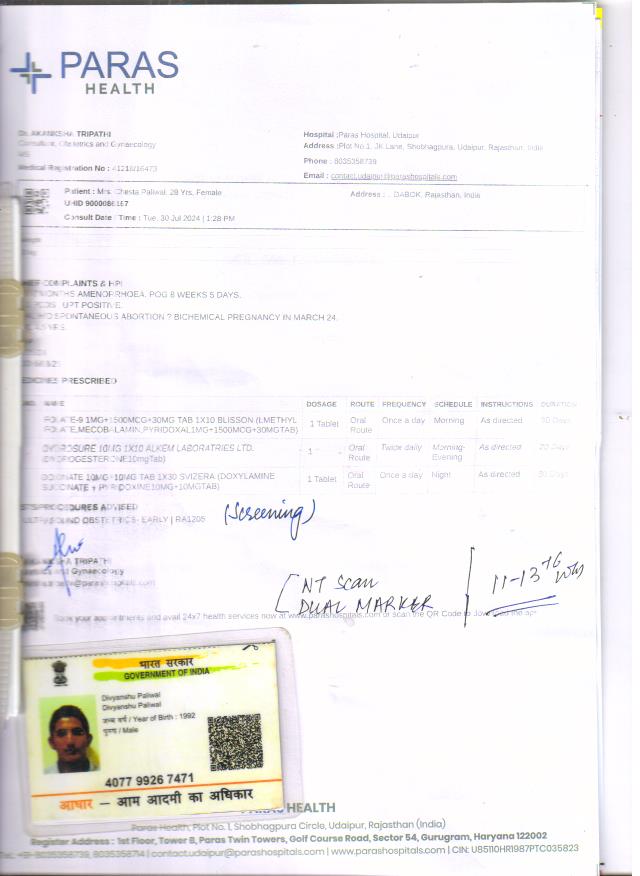 PARAS
HEALTH
Dr. AKANKSHA TRIPATHI
Consultant, Obstetrics and Gynaecology
MS
Medical Registration No : 41218/16473
Hospital :Paras Hospital, Udaipur
Address :Plot No.1, JK Lane, Shobhagpura, Udaipur, Rajasthan, India
Phone : 8035358739
Email : contact.udaipur@parashospitals.com
Patient : Mrs. Chesta Paliwal, 28 Yrs, Female
Address : , DABOK, Rajasthan, India
UHID 9000086167
Consult Date / Time : Tue, 30 Jul 2024 | 1:28 PM
COMPLAINTS & HPI
MONTHS AMENORRHOEA. POG 8 WEEKS 5 DAYS.
UPT POSITIVE.
SPONTANEOUS ABORTION ? BICHEMICAL PREGNANCY IN MARCH 24.
PRESCRIBED
NAME DOSAGE ROUTE FREQUENCY SCHEDULE INSTRUCTIONS DURATION
FOLATE-9 1MG+1500MCG+30MG TAB 1X10 BLISSON (LMETHYL
FOLATE,MECOBALAMIN,PYRIDOXAL1MG+1500MCG+30MGTAB)
1 Tablet Oral Route Once a day Morning As directed 30 Days
HYDROSURE 10MG 1X10 ALKEM LABORATRIES LTD.
(DYDROGESTERONE10mgTab)
1 Tablet Oral Route Twice daily Morning-Evening As directed 20 Days
DOXINATE 10MG+10MG TAB 1X30 SVIZERA (DOXYLAMINE
SUCCINATE + PYRIDOXINE10MG+10MGTAB)
1 Tablet Oral Route Once a day Night As directed 30 Days
TESTS/PROCEDURES ADVISED
ULTRASOUND OBSTETRICS- EARLY | RA1205
(Screening)
AKANKSHA TRIPATHI
Obstetrics and Gynaecology
NT Scan
DUAL MARKER
11-13+6 wks
Book your appointments and avail 24x7 health services now at www.parashospitals.com or scan the QR Code to download the app
भारत सरकार
GOVERNMENT OF INDIA
Divyanshu Paliwal
Divyanshu Paliwal
जन्म वर्ष / Year of Birth : 1992
पुरुष / Male
4077 9926 7471
आधार – आम आदमी का अधिकार
PARAS HEALTH
Paras Health, Plot No. 1, Shobhagpura Circle, Udaipur, Rajasthan (India)
Register Address : 1st Floor, Tower B, Paras Twin Towers, Golf Course Road, Sector 54, Gurugram, Haryana 122002
Tel: +91-8035358739, 8035358714 | contact.udaipur@parashospitals.com | www.parashospitals.com | CIN: U85110HR1987PTC035823